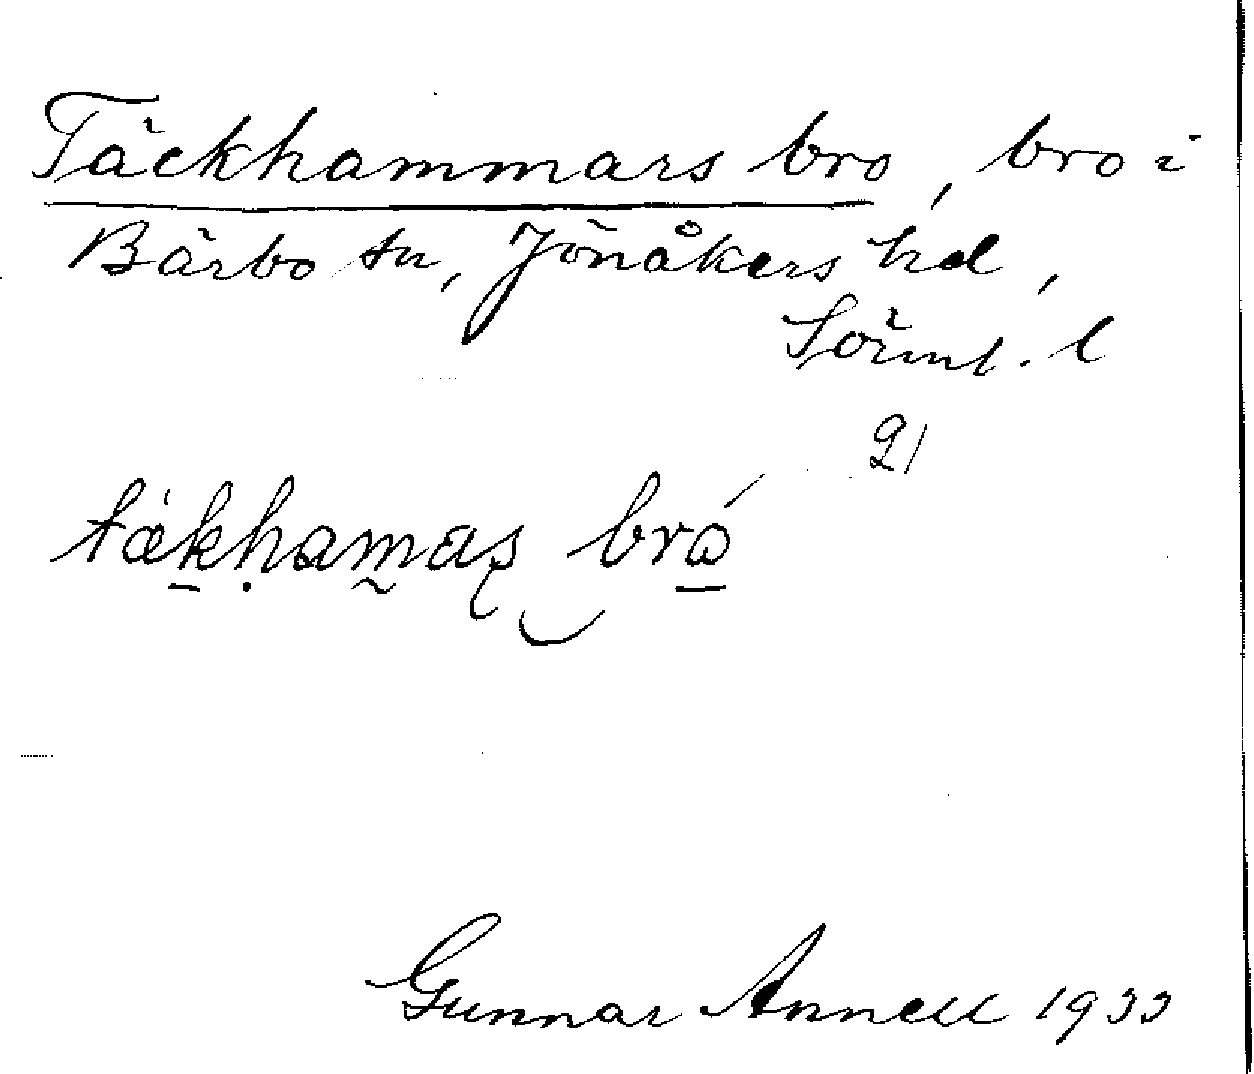 Täckhammars bro, bro i
Bärbo sn, Jönåkers hd,
Sörml. l
21
tækhamas bro
Gunnar Annell 1933